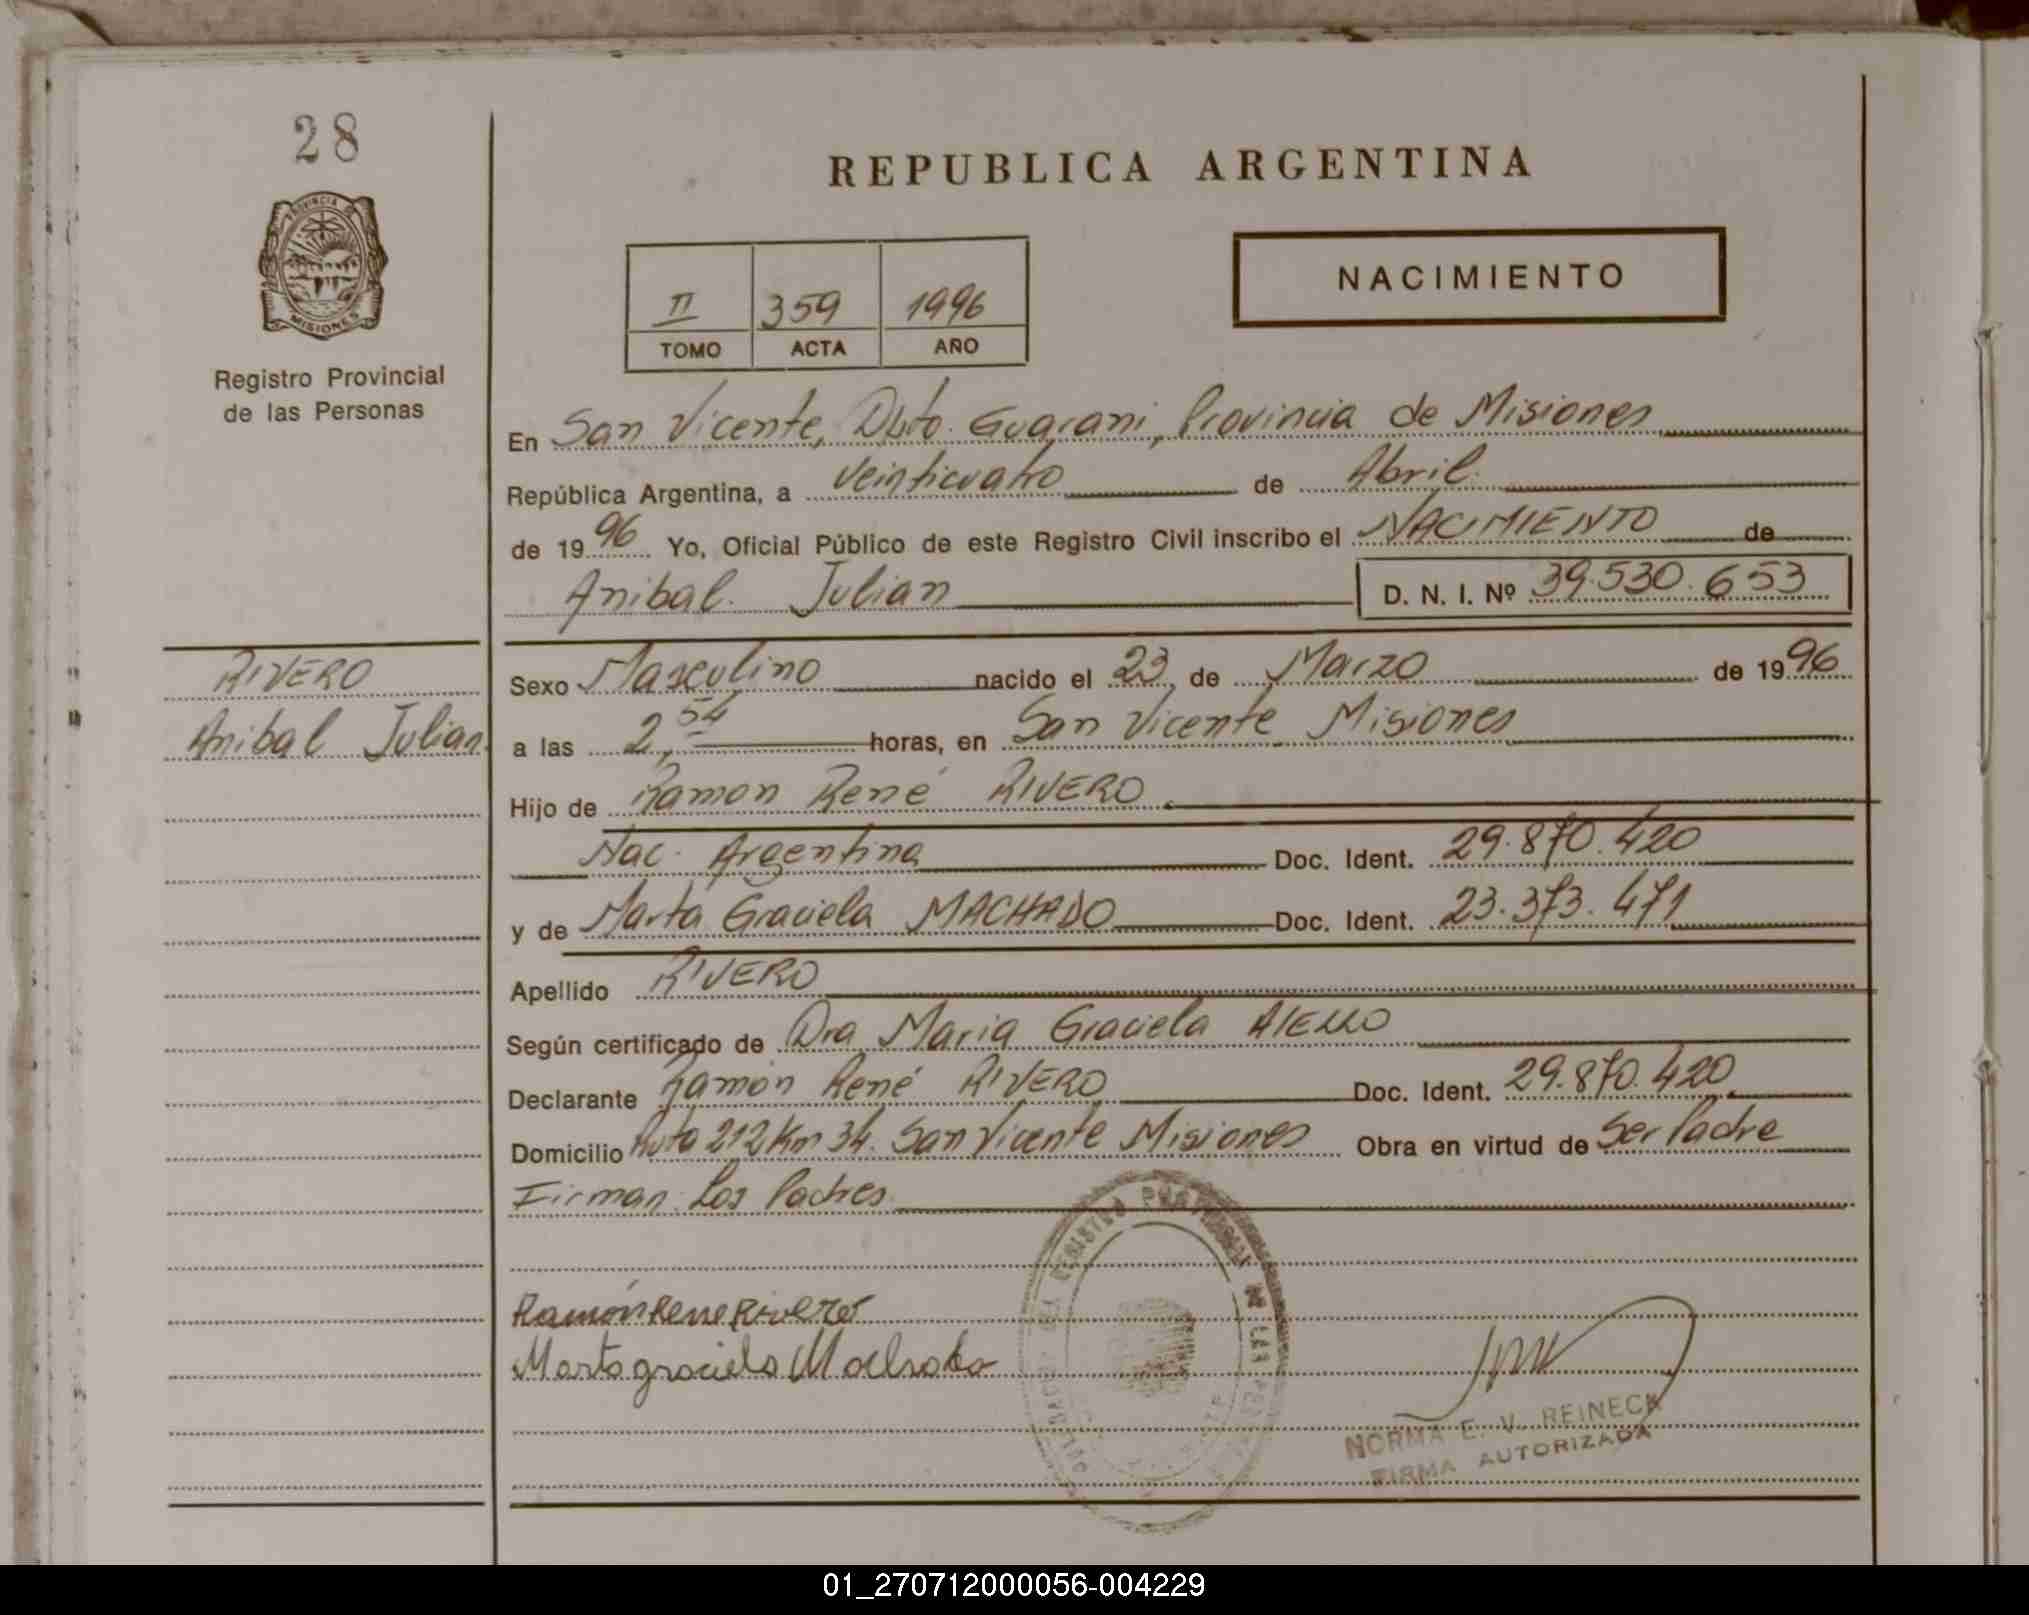 28
PROVINCIA DE
MISIONES
Registro Provincial
de las Personas
REPUBLICA ARGENTINA
NACIMIENTO
II 359 1996
TOMO ACTA AÑO
En San Vicente, Dpto. Guarani, Provincia de Misiones
República Argentina, a veinticuatro de Abril
de 1996 Yo, Oficial Público de este Registro Civil inscribo el NACIMIENTO de
Anibal Julian D. N. I. Nº 39.530.653
RIVERO
Anibal Julian
Sexo Masculino nacido el 23 de Marzo de 1996
a las 2,54 horas, en San Vicente Misiones
Hijo de Ramon René RIVERO
Nac. Argentina Doc. Ident. 29.870.420
y de Marta Graciela MACHADO Doc. Ident. 23.373.471
Apellido RIVERO
Según certificado de Dra Maria Graciela AIELLO
Declarante Ramón René RIVERO Doc. Ident. 29.870.420
Domicilio Ruta 212 Km 34. San Vicente Misiones Obra en virtud de Ser Padre
Firman Los Padres
Ramón Rene Rivero
Marta graciela Machado
REGISTRO PROVINCIAL DE LAS
NORMA E. V. REINECK
FIRMA AUTORIZADA
01_270712000056-004229